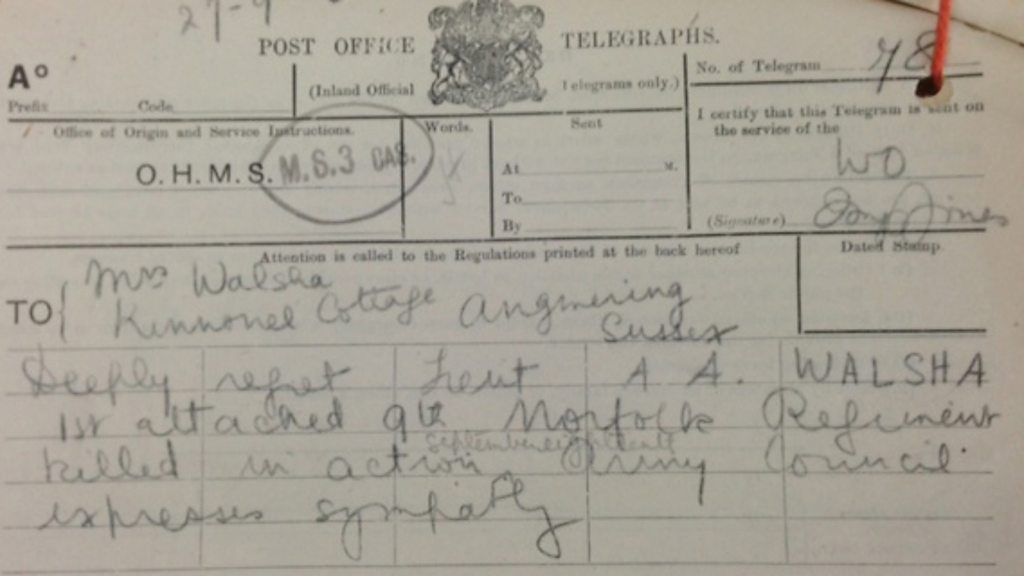 27-9
POST OFFICE TELEGRAPHS.
A°
(Inland Official Telegrams only.)
No. of Telegram 78
Prefix Code
I certify that this Telegram is sent on
the service of the
WO
Office of Origin and Service Instructions.
Words.
Sent
O. H. M. S. M.S.3 CAS.
At M.
To
By
(Signature)
Attention is called to the Regulations printed at the back hereof
Dated Stamp
TO Mrs Walsha
Kinmonel Cottage Angmering
Sussex
Deeply regret Lieut A A. WALSHA
1st attached 9th Norfolk Regiment
september eighteenth
killed in action Army Council
expresses sympathy